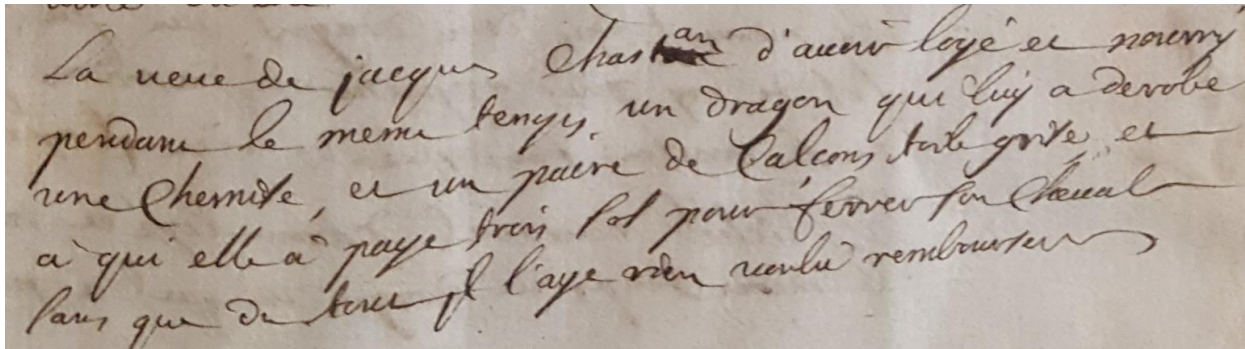 La veue de jacques Chastan d'auoir logé et nourry
pendant le meme temps, un dragon qui luy a derobé
une Chemise, et un paire de Calçons toile grise, et
a qui elle à payé trois sol pour ferrer son Cheual
sans que du tout il l'aye rien voulu rembourser